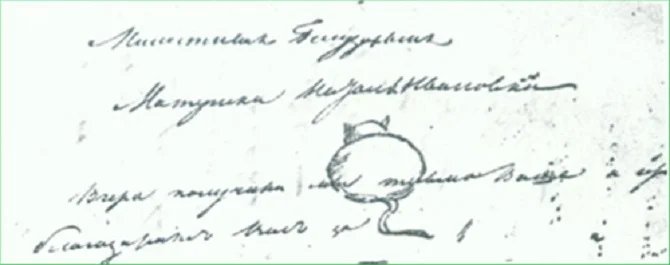 Милостивая Государыня
Матушка Наталья Ивановна
Вчера получили мы письмо Ваше и
благодарим Вас за